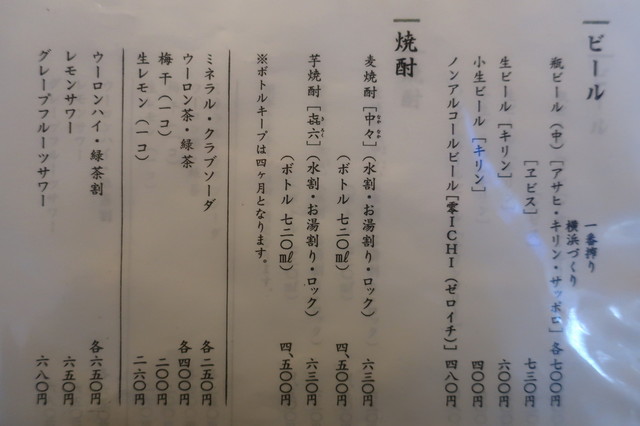 ビール
一番搾り
横浜づくり
瓶ビール（中）［アサヒ・キリン・サッポロ］ 各七〇〇円
［ヱビス］ 七三〇円
生ビール［キリン］ 六〇〇円
小生ビール［キリン］ 四〇〇円
ノンアルコールビール［零ＩＣＨＩ（ゼロイチ）］ 四八〇円
焼酎
麦焼酎［中々］（水割・お湯割り・ロック） 六三〇円
（ボトル 七二〇㎖） 四、五〇〇円
芋焼酎［㐂六］（水割・お湯割り・ロック） 六三〇円
（ボトル 七二〇㎖） 四、五〇〇円
※ボトルキープは四ヶ月となります。
ミネラル・クラブソーダ 各二五〇円
ウーロン茶・緑茶 各四〇〇円
梅干（一コ） 二〇〇円
生レモン（一コ） 二六〇円
ウーロンハイ・緑茶割 各六五〇円
レモンサワー 六五〇円
グレープフルーツサワー 六八〇円